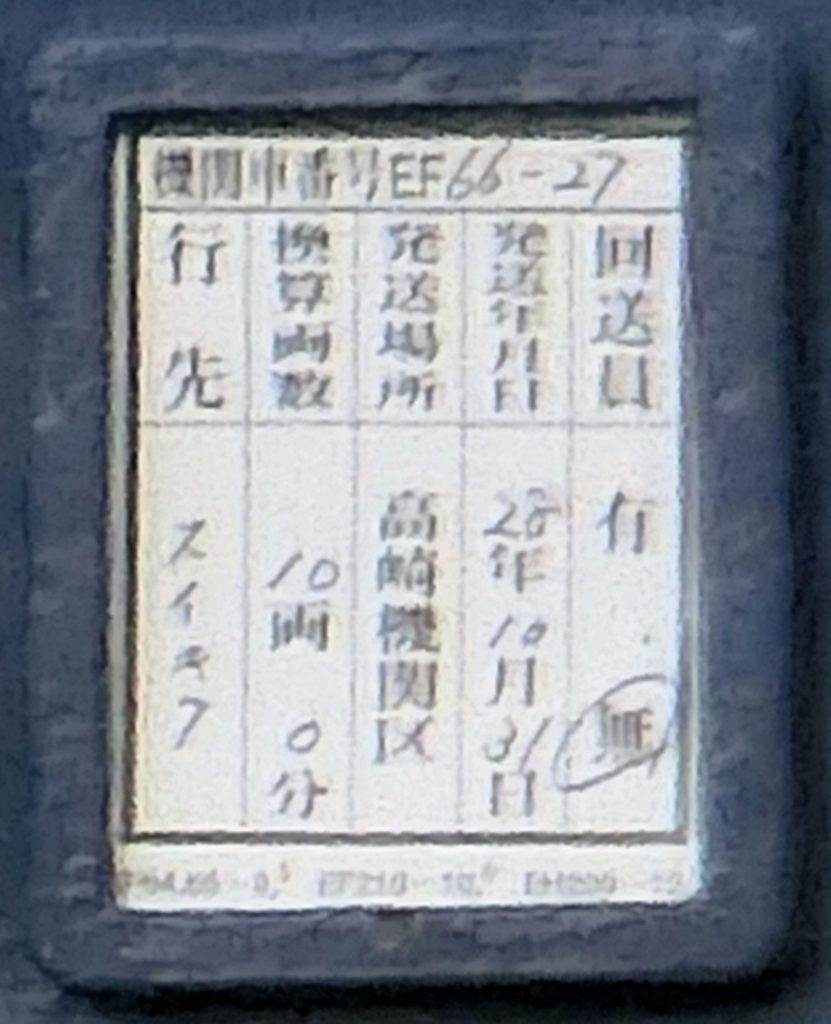 機関車番号EF66-27
回送員 有・無
発送年月日 28年10月31日
発送場所 高崎機関区
換算両数 10両 0分
行先 スイタ